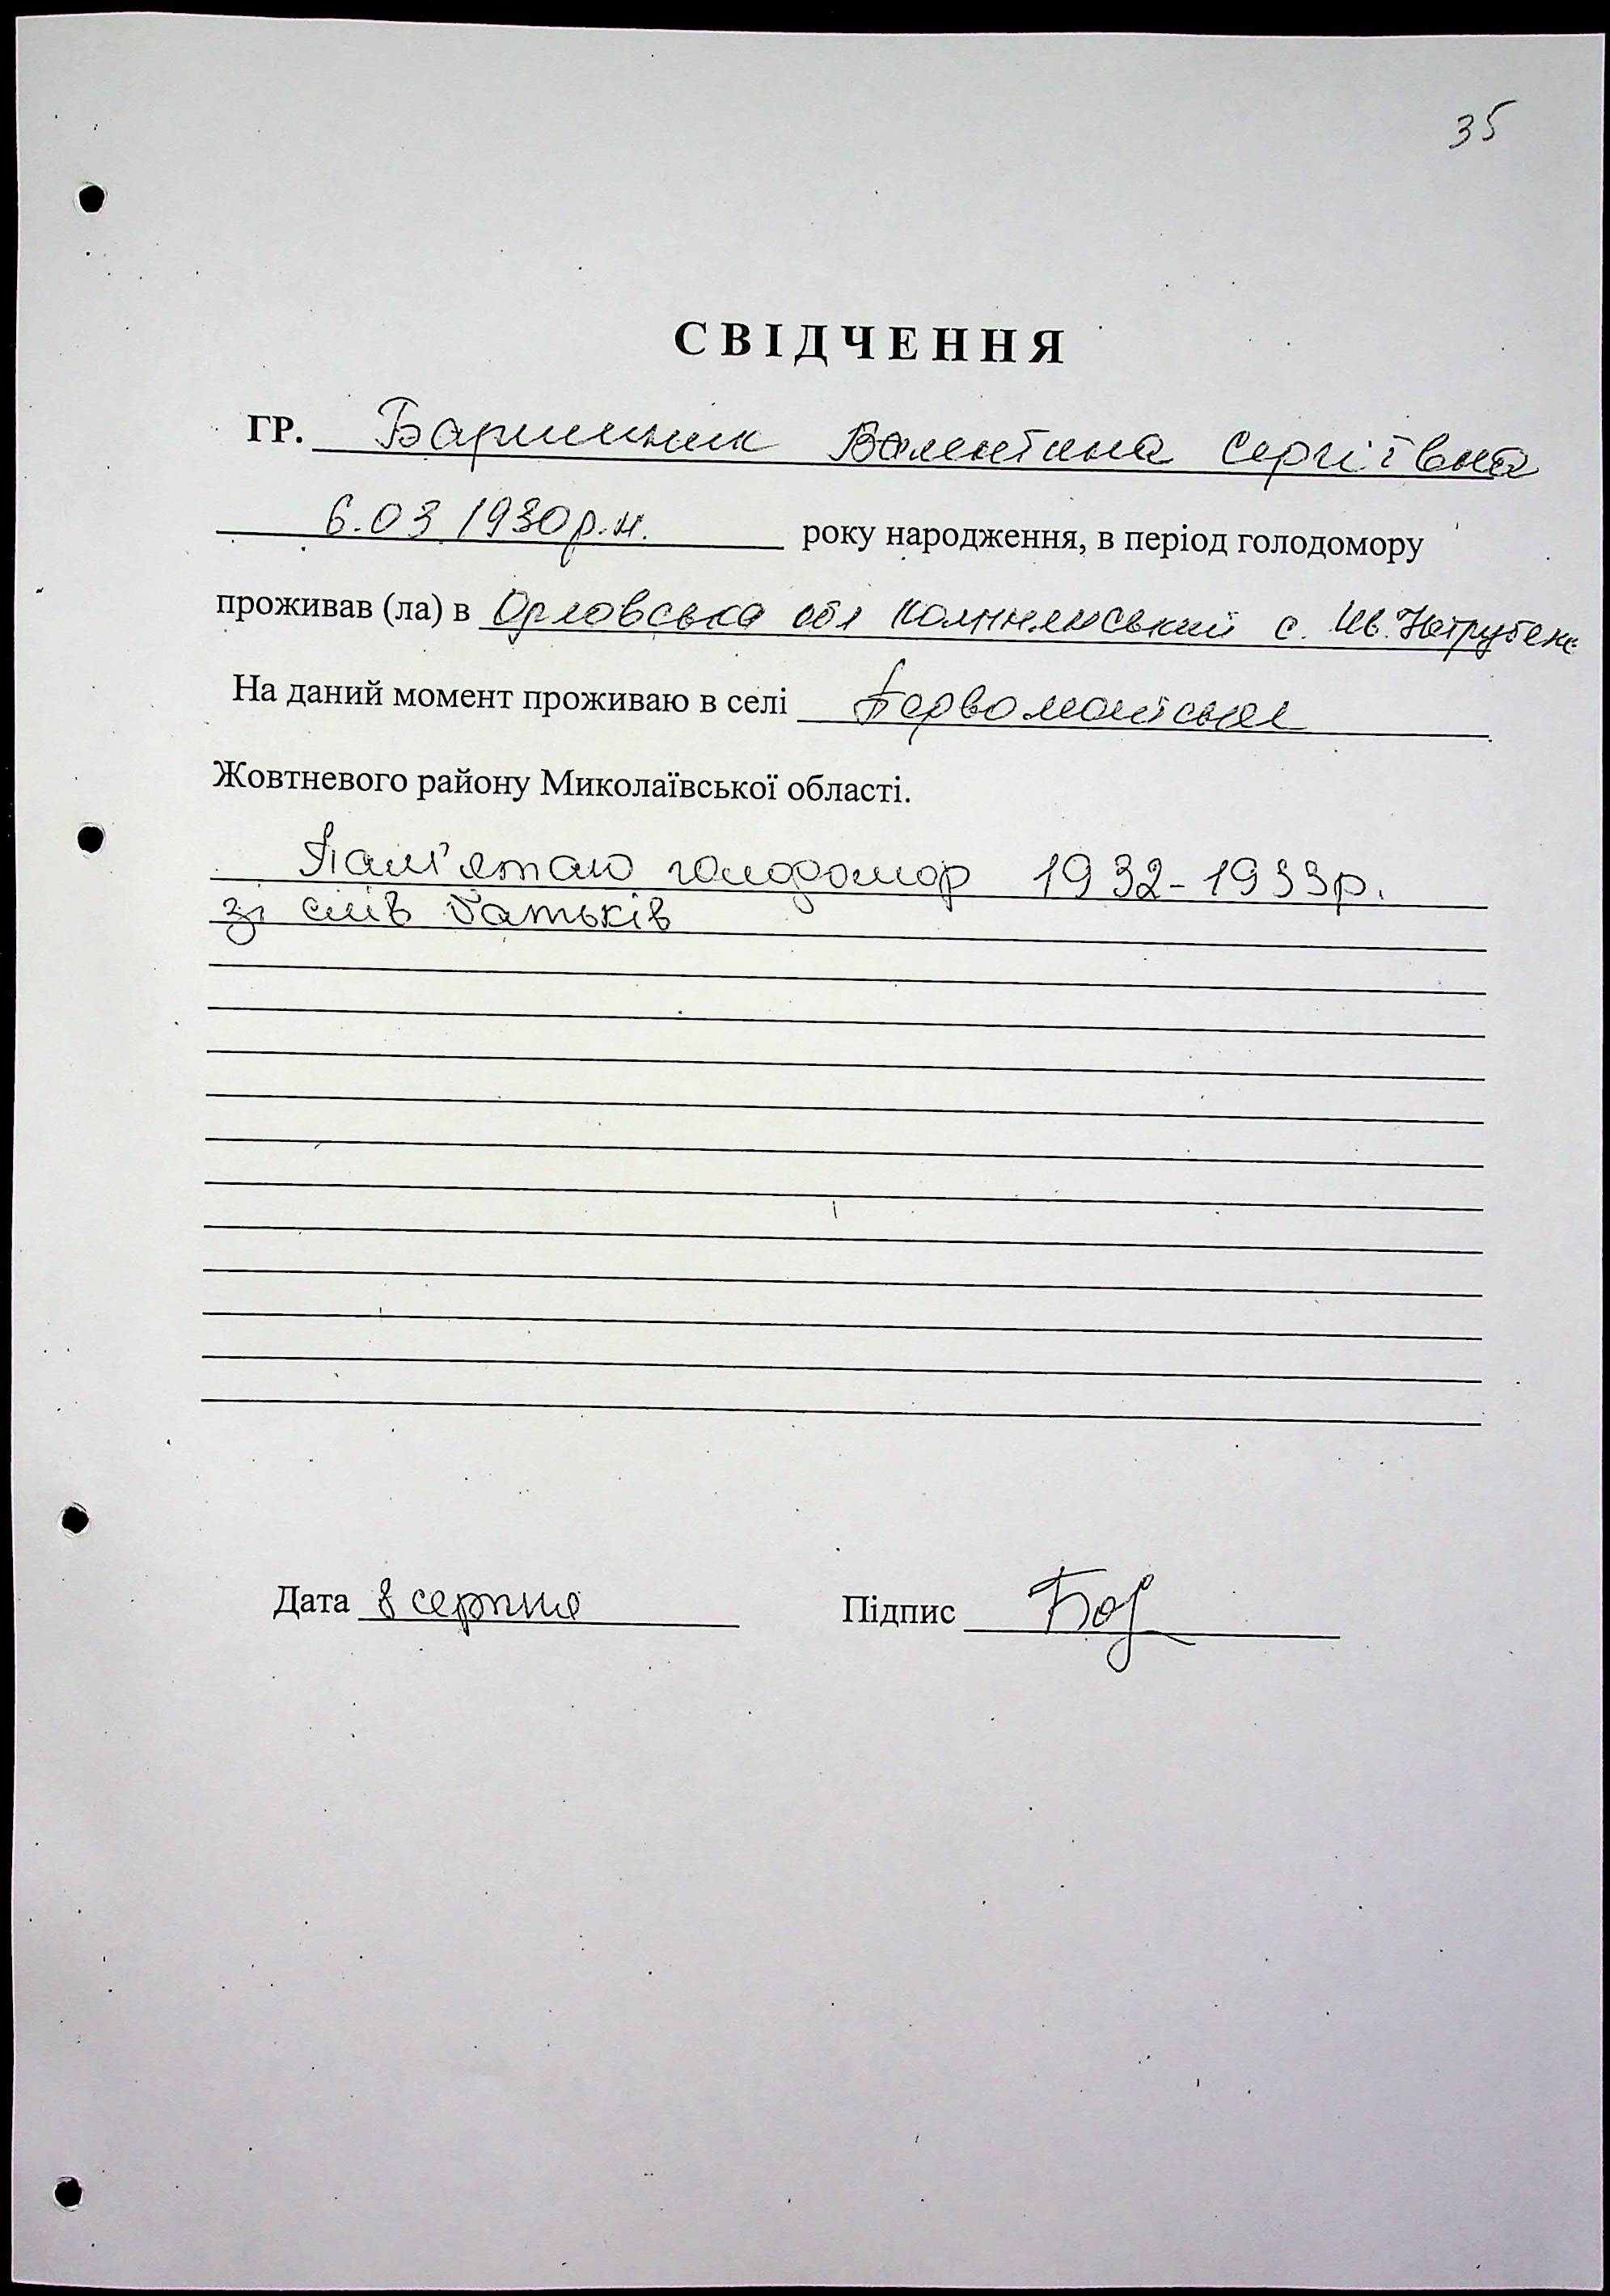 35
СВІДЧЕННЯ
ГР. Валентина Сергіївна
6.03 1930р.н. року народження, в період голодомору
проживав (ла) в Орловська обл с. Ив.
На даний момент проживаю в селі
Жовтневого району Миколаївської області.
Пам'ятаю голодомор 1932-1933р.
зі слів батьків
Дата 8 серпня Підпис